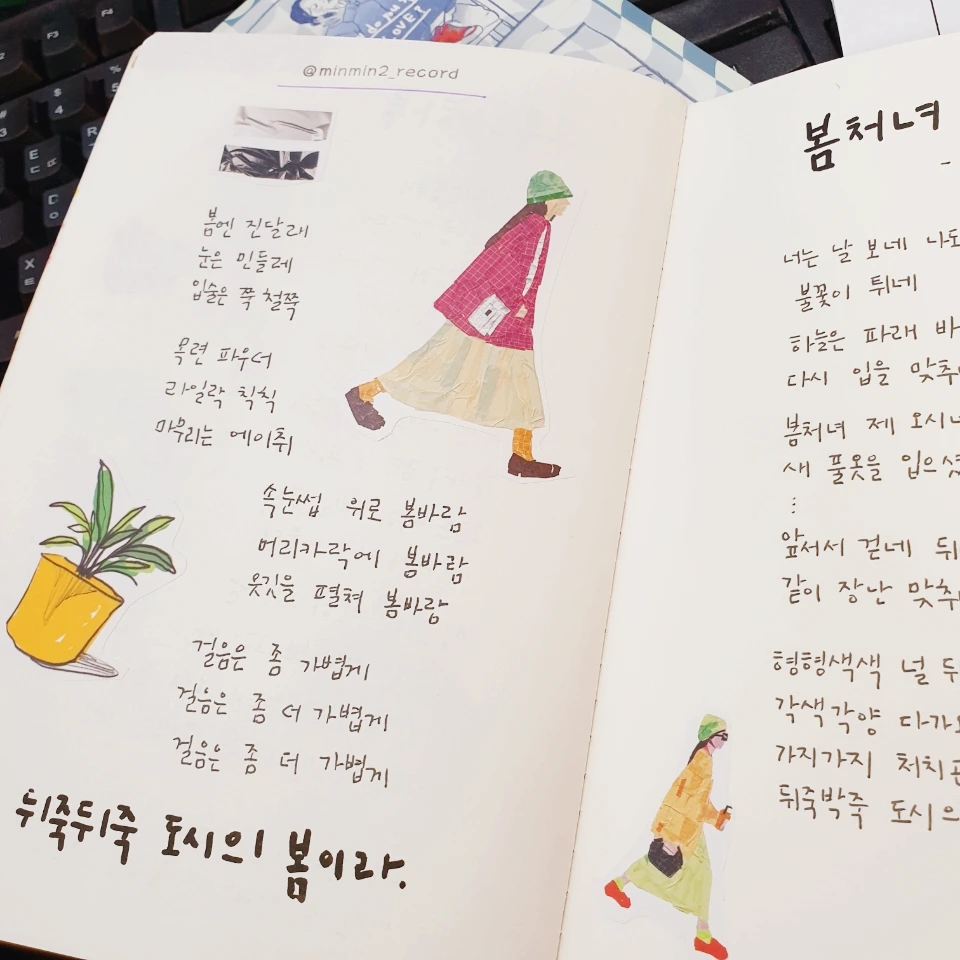 @minmin2_record
봄엔 진달래
눈은 민들레
입술은 쭉 철쭉
목련 파우더
라일락 칙칙
마무리는 에이취
속눈썹 위로 봄바람
머리카락에 봄바람
옷깃을 펼쳐 봄바람
걸음은 좀 가볍게
걸음은 좀 더 가볍게
걸음은 좀 더 가볍게
뒤죽뒤죽 도시의 봄이라.
봄처녀
너는 날 보네 나도
불꽃이 튀네
하늘은 파래
다시 입을 맞추
봄처녀 제 오시
새 풀옷을 입으셨
...
앞서서 걷네
같이 장난 맞추
형형색색 널
각색각양 다가
가지가지 처치
뒤죽박죽 도시의